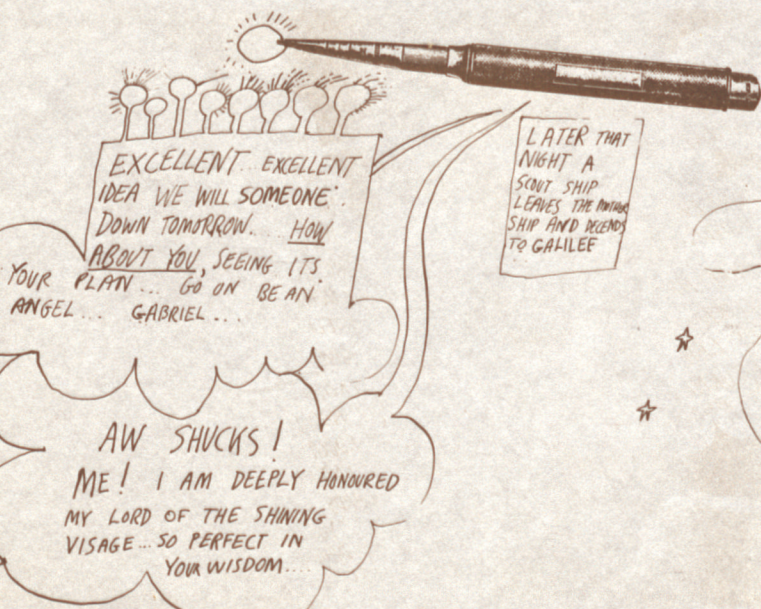 EXCELLENT EXCELLENT
IDEA WE WILL SOMEONE
DOWN TOMORROW.... HOW
ABOUT YOU, SEEING ITS
YOUR PLAN... GO ON BE AN
ANGEL... GABRIEL...
LATER THAT
NIGHT A
SCOUT SHIP
LEAVES THE MOTHER
SHIP AND DECENDS
TO GALILEE
AW SHUCKS!
ME! I AM DEEPLY HONOURED
MY LORD OF THE SHINING
VISAGE... SO PERFECT IN
YOUR WISDOM....